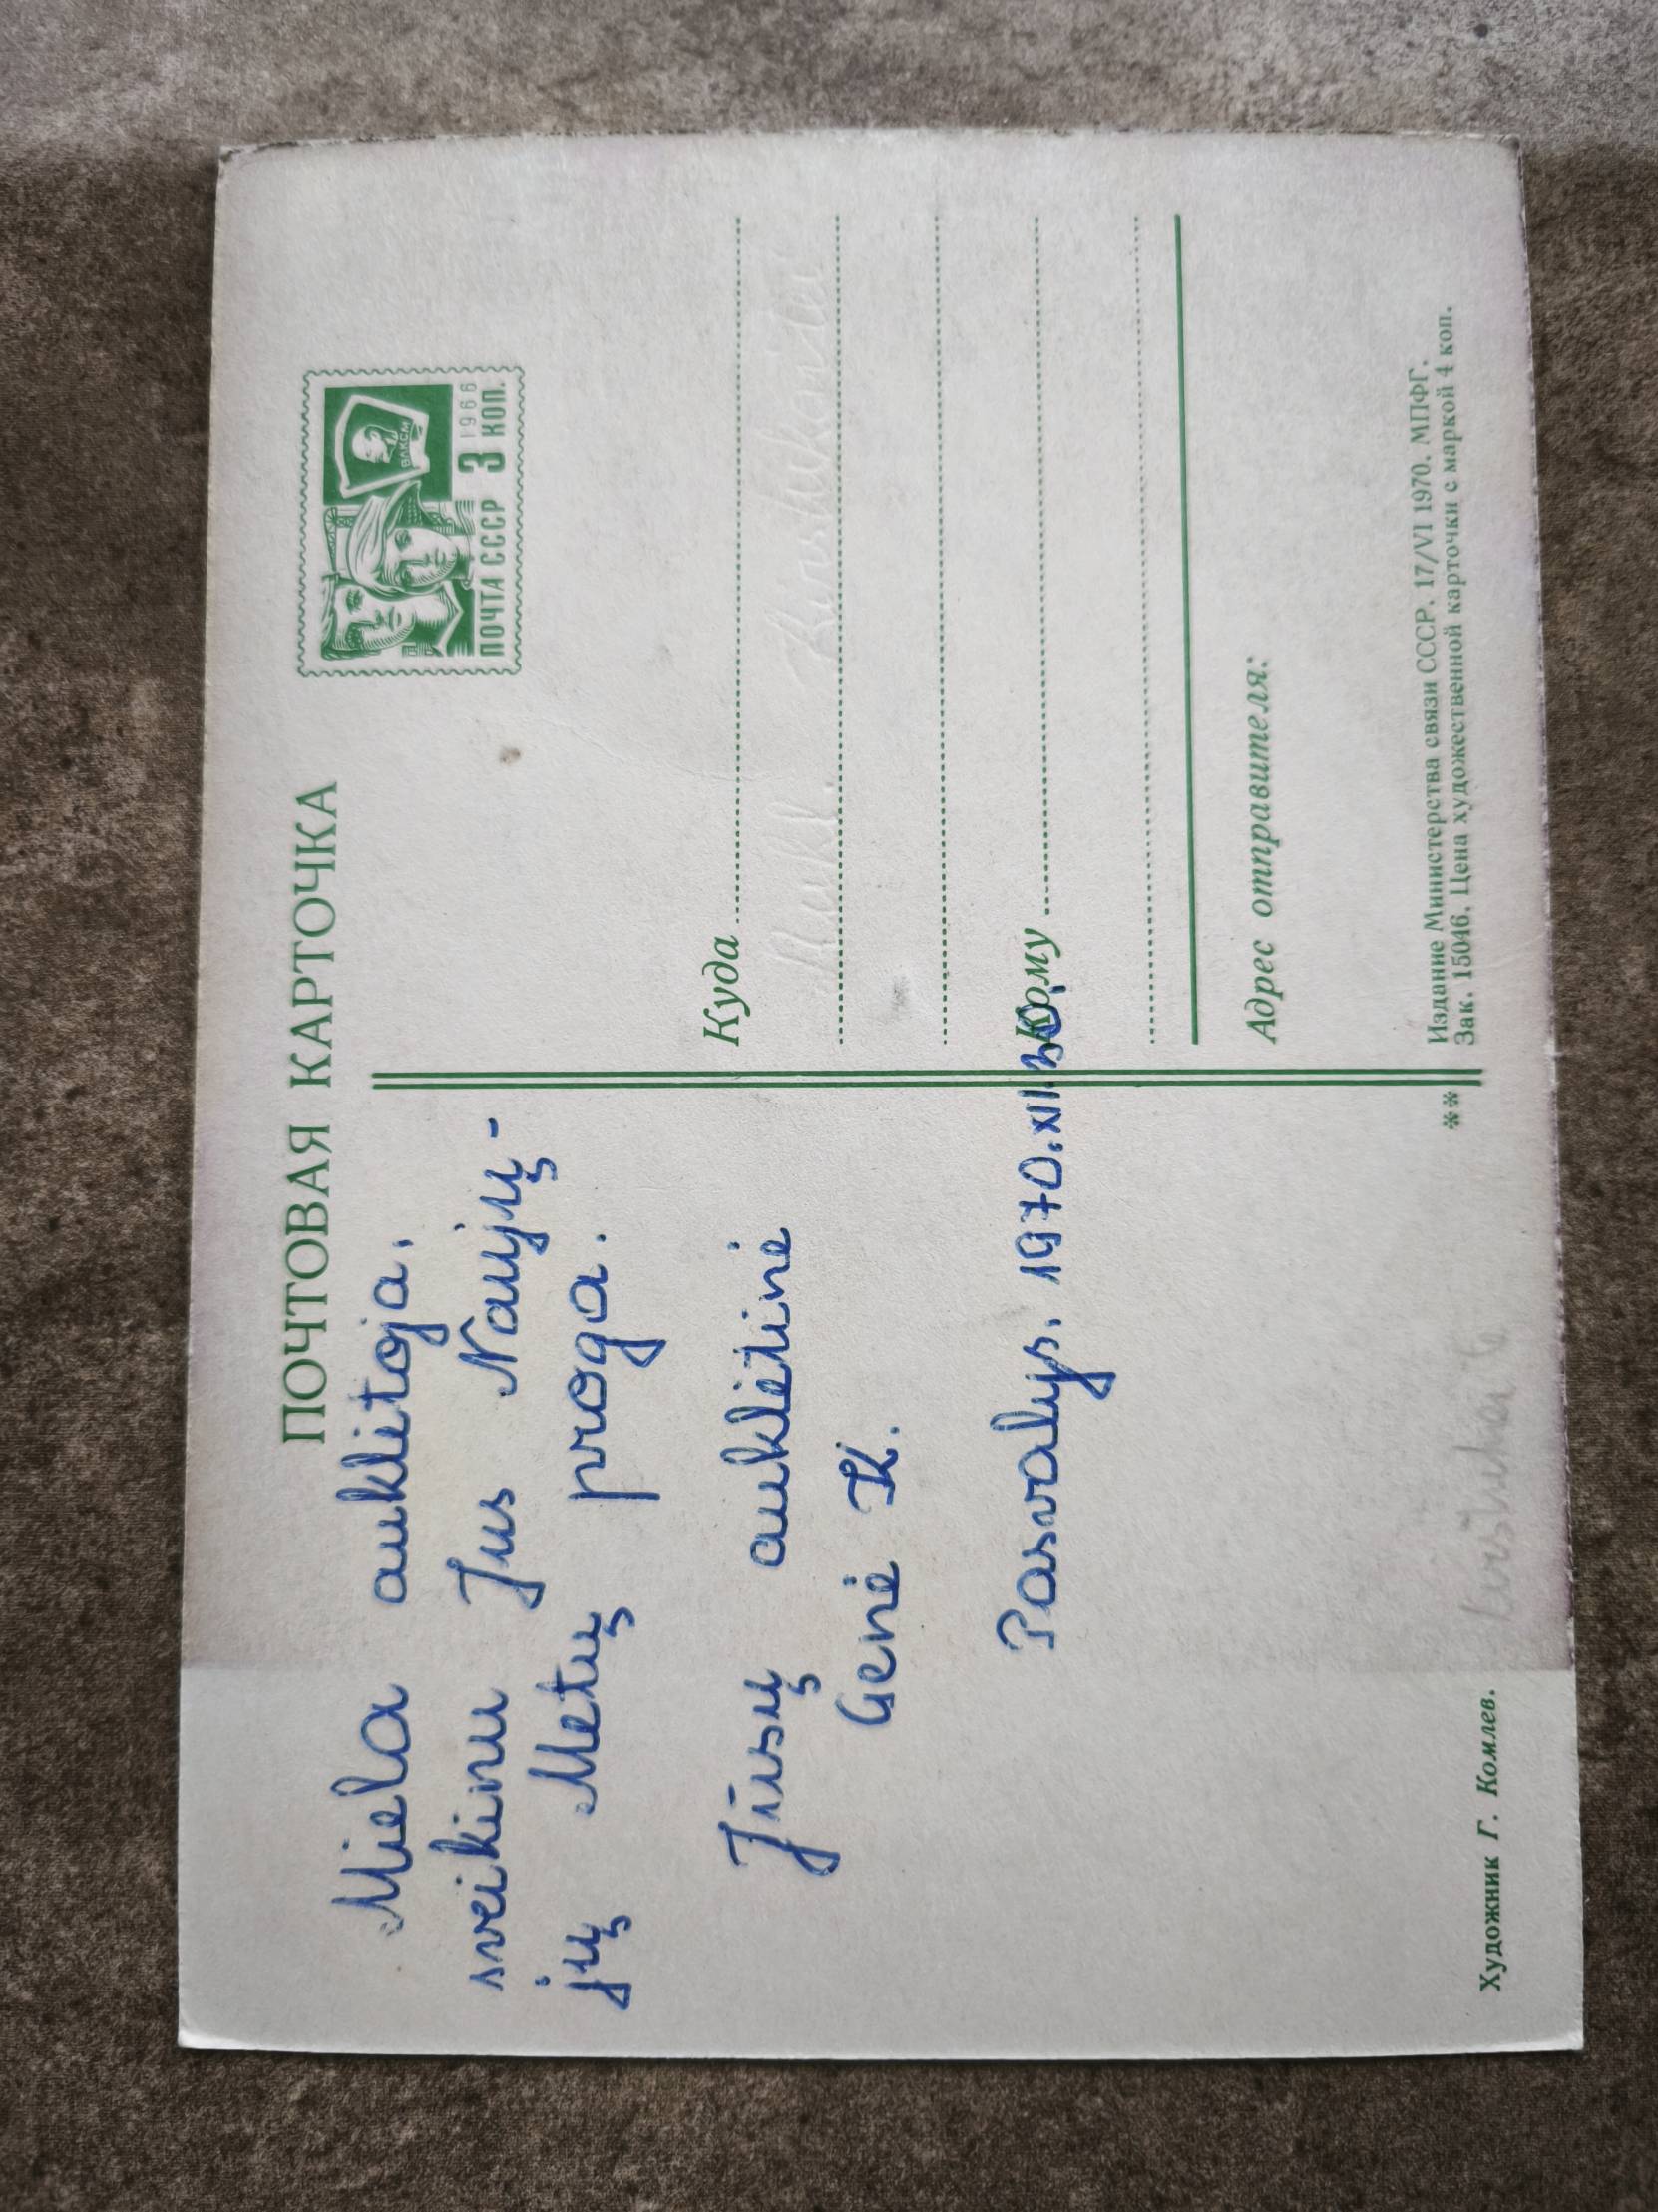 ПОЧТОВАЯ КАРТОЧКА
Miela auklėtoja.
sveikinu Jus Naujų-
jų Metų proga.
Jūsų auklėtinė
Genė K.
Pasvalys. 1970.XII.30.
Художник Г. Комлев.
ВЛКСМ
1966
ПОЧТА СССР 3 КОП.
Куда
Кому
Адрес отправителя:
** Издание Министерства связи СССР. 17/VI 1970. МПФГ.
Зак. 15046. Цена художественной карточки с маркой 4 коп.